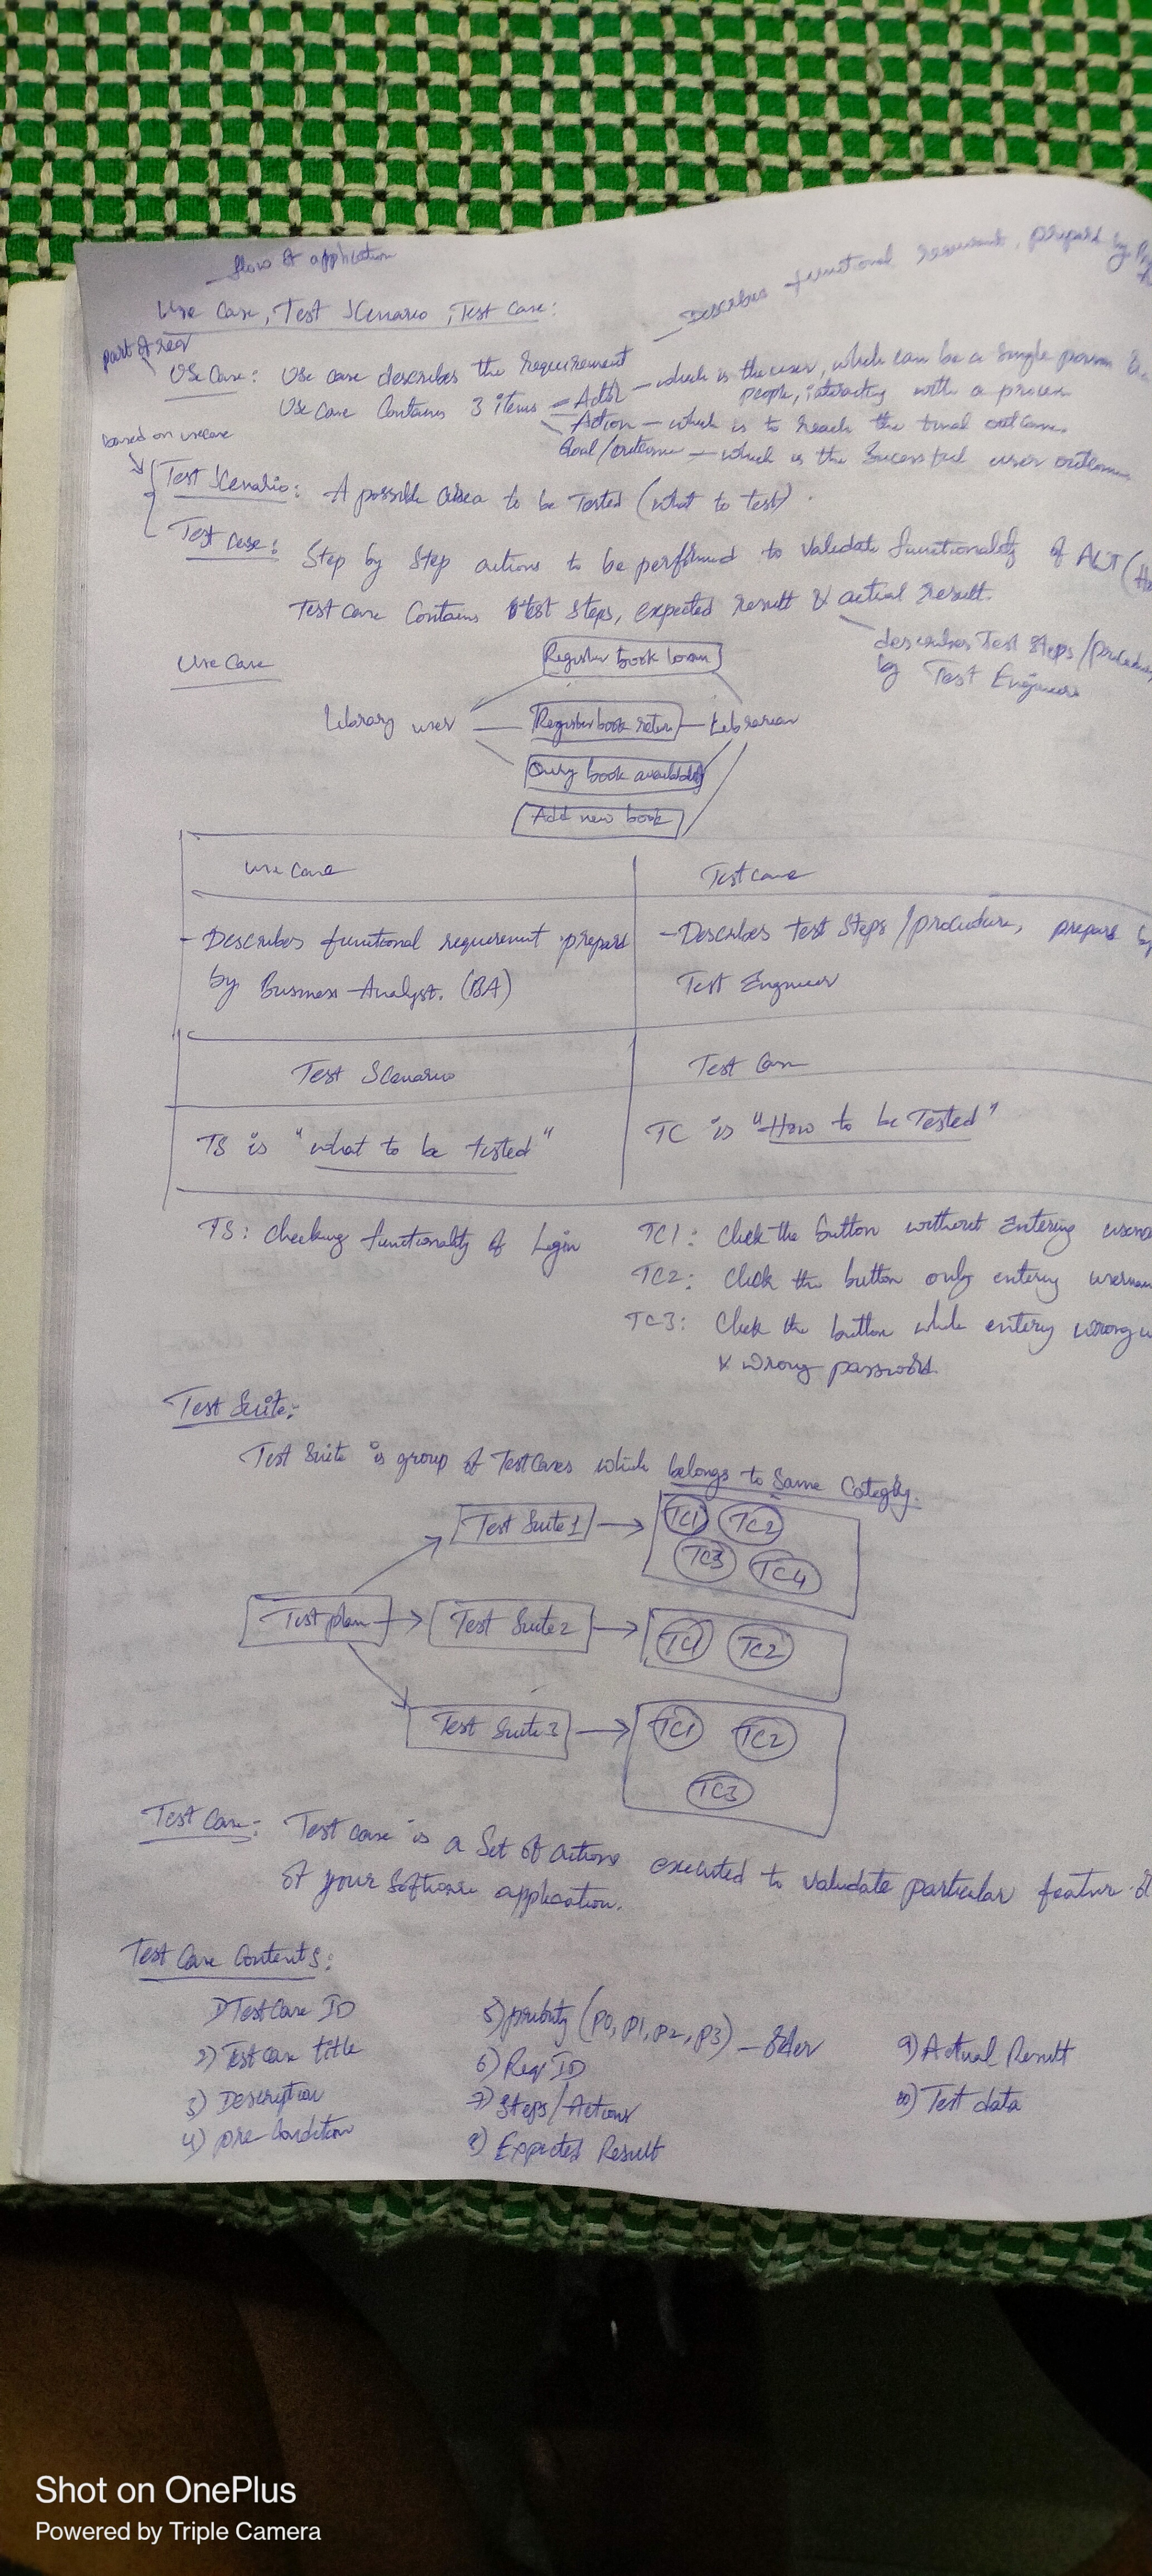 flow of application
Use Case, Test Scenario, Test Case:
Describes functional requirement, prepared by
part of req
Use Case: Use case describes the requirement
Use case Contains 3 items - Actor - which is the user, which can be a single person
people, interacting with a process
Action - which is to reach the final outcome
Goal/outcome - which is the Sucessful user outcome
based on usecase
Test Scenario: A possible area to be Tested (what to test).
Test case: Step by Step actions to be performed to validate functionality of AUT
Test case Contains test steps, expected result & actual result.
describes Test Steps/procedure
by Test Engineers
Use Case
Register book loan
Library user
Register book return
Librarian
Query book availability
Add new book
use case
Test case
- Describes functional requirement prepared
by Business Analyst. (BA)
- Describes test Steps/procedure, prepared by
Test Engineer
Test Scenario
Test Case
TS is "what to be tested"
TC is "How to be Tested"
TS: Checking functionality of Login
TC1: Click the button without Entering
TC2: Click the button only entering
TC3: Click the button while entery wrong
& wrong password.
Test Suite:
Test Suite is group of Test Cases which belongs to Same Category.
Test plan
Test Suite1
TC1 TC2
TC3 TC4
Test Suite2
TC1 TC2
Test Suite3
TC1 TC2
TC3
Test Case: Test case is a Set of actions executed to validate particular feature
of your Software application.
Test Case Contents:
1) Test Case ID
2) Test case title
3) Description
4) pre-Condition
5) priority (P0, P1, P2, P3) -
6) Req ID
7) Steps/Actions
8) Expected Result
9) Actual Result
10) Test data
Shot on OnePlus
Powered by Triple Camera